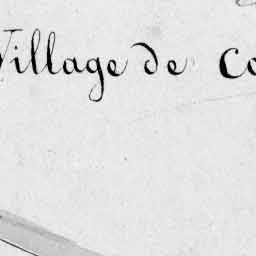 Village de Co